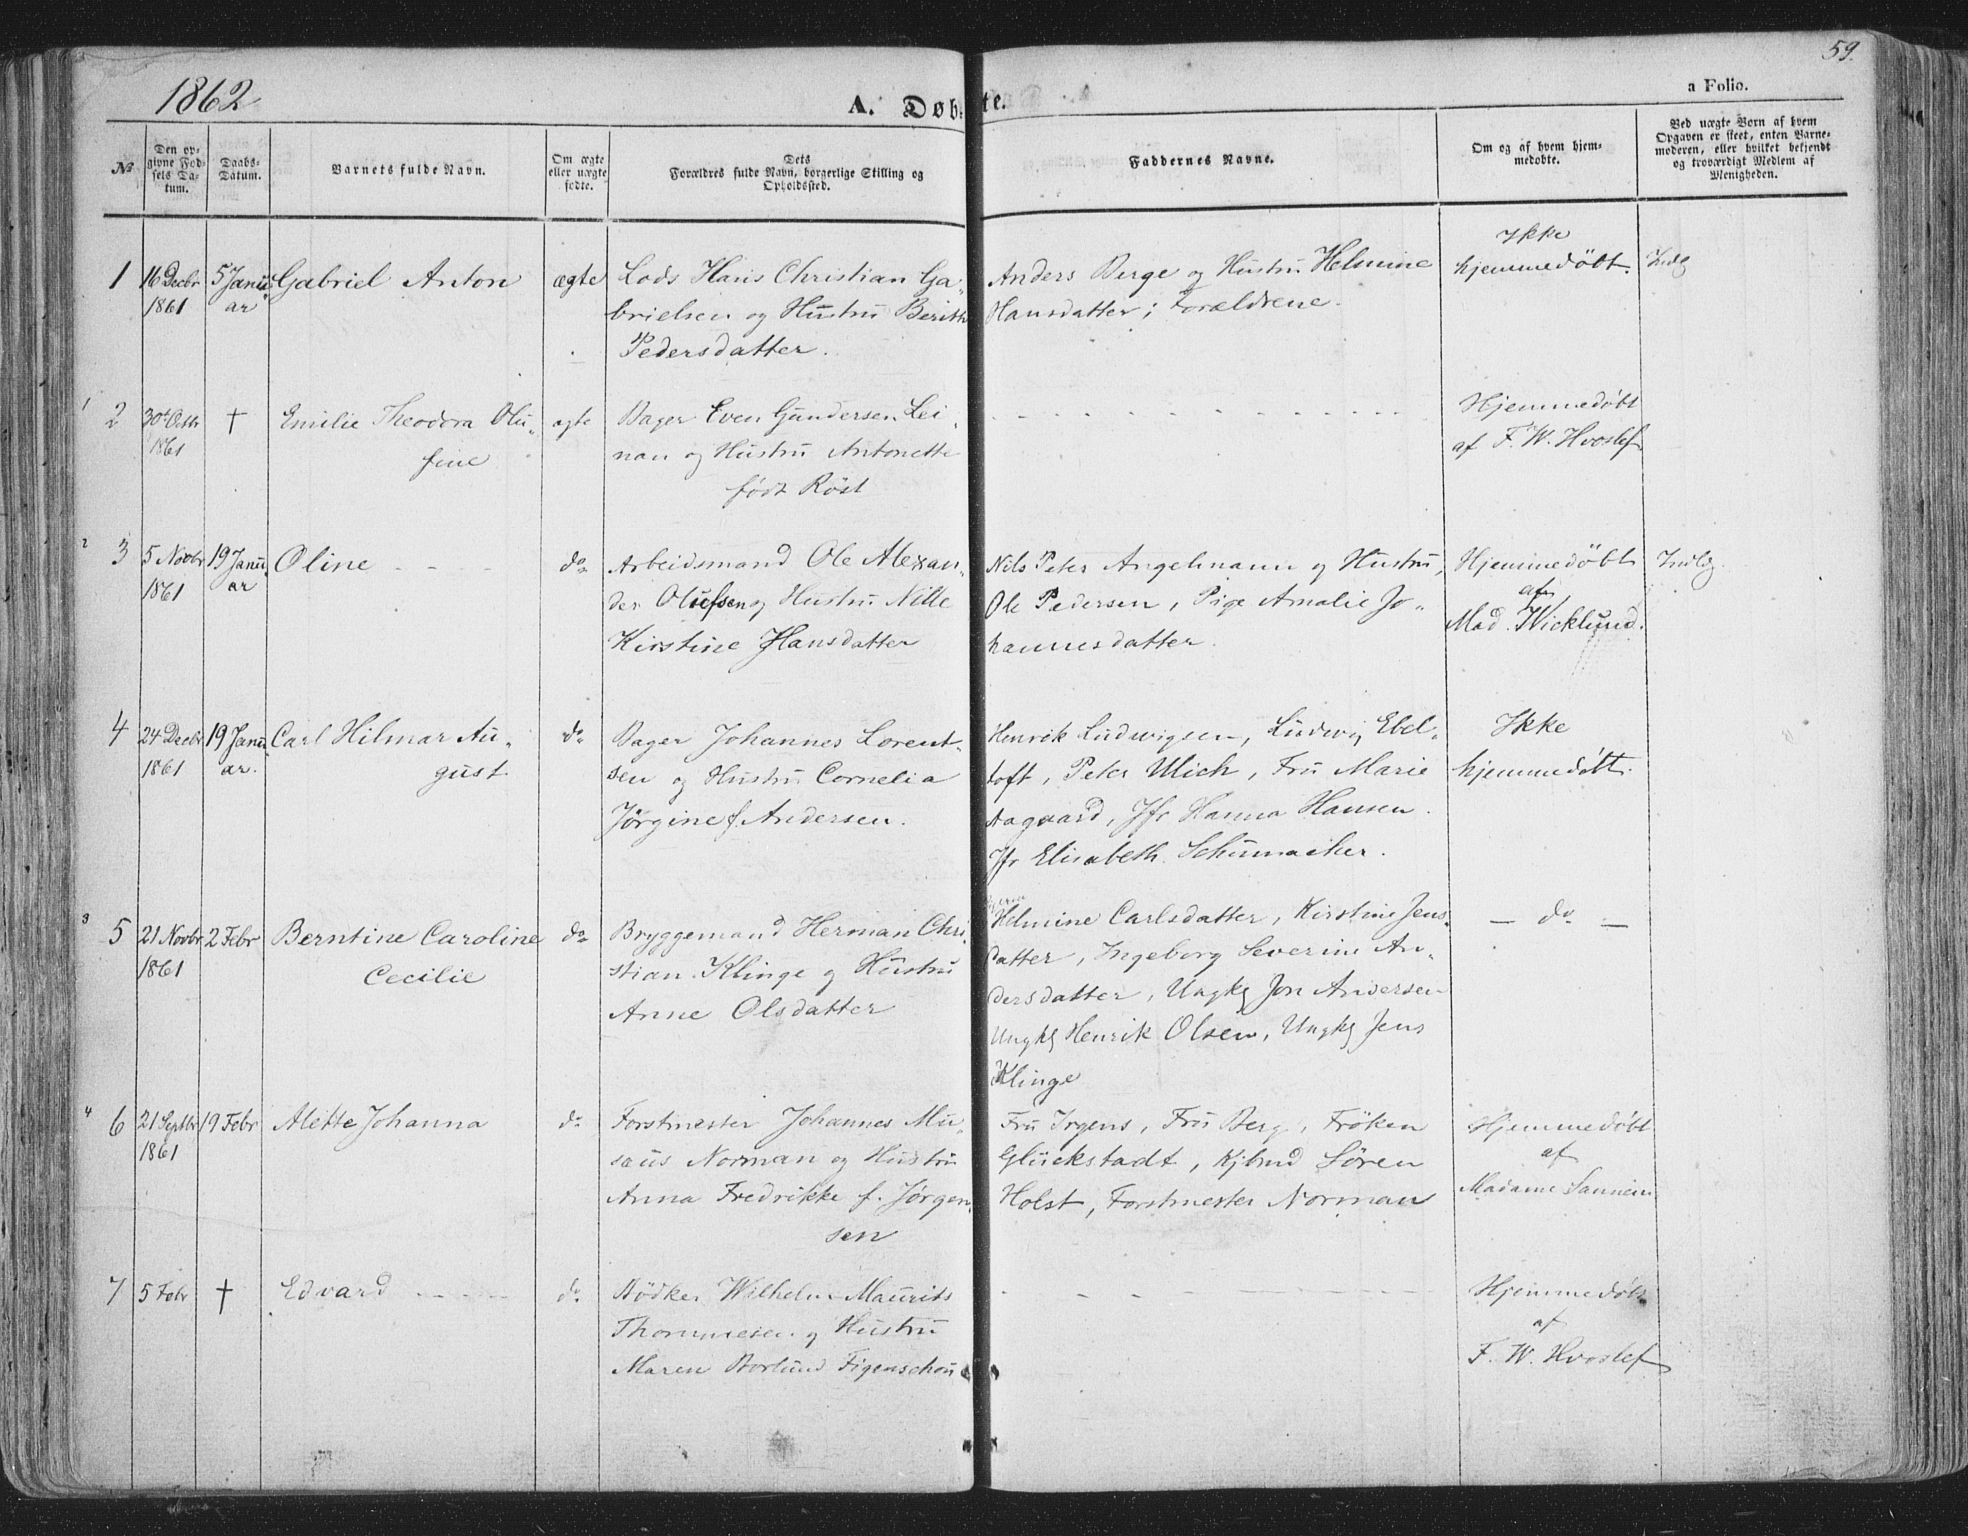 1862
59.
A. Døb-
te.
a Folio.
No
Den op-
givne Fød-
sels Da-
tum.
Daabs-
Datum.
Barnets fulde Navn.
Om ægte
eller uægte
fødte.
Dets
Forældres fulde Navn, borgerlige Stilling og
Opholdssted.
Faddernes Navne.
Om og af hvem hjem-
medøbte.
Ved uægte Børn af hvem
Opgaven er skeet, enten Barne-
moderen, eller hvilket bekjendt
og troværdigt Medlem af
Menigheden.
1
16 Decbr
1861
5 Janu-
ar
Gabriel Anton
ægte
Lods Hans Christian Ga-
brielsen og Hustru Berith
Pedersdatter.
Anders Berge og Hustru Helmine
Hansdatter; Forældrene.
Ikke
hjemmedøbt.
Indlg
1
2
30t Octbr
1861
†
Emilie Theodora Olu-
fine
ægte
Bager Even Gundersen Lei-
nan og Hustru Antonette
født Röst
Hjemmedøbt
af F. W. Hvoslef
2
3
5 Novbr
1861
19 Janu-
ar
Oline
do
Arbeidsmand Ole Alexan-
der Olufsen og Hustru Nille
Kirstine Hansdatter
Nils Peter Angelmann og Hustru,
Ole Pedersen, Pige Amalie Jo-
hannesdatter.
Hjemmedøbt
af
Mad. Wicklund.
Indlg.
4
24 Decbr
1861
19 Janu-
ar.
Carl Hilmar Au-
gust
do
Bager Johannes Lorent-
sen og Hustru Cornelia
Jørgine f. Andersen.
Henrik Ludwigsen, Ludwig Ebel-
toft, Peter Ulich, Fru Marie
Aagaard, Jfr Hanna Hansen.
Jfr Elisabeth Schumacher.
Ikke
hjemmedøbt.
3
5
21 Novbr
1861
2 Febr
Berntine Caroline
Cecilie
do
Bryggemand Herman Chri-
stian Klinge og Hustru
Anne Olsdatter
Helmine Carlsdatter, Kirstine Jens-
datter, Ingeborg Severine An-
dersdatter, Ungkl Jon Andersen
Ungkl Henrik Olsen, Ungkl Jens
Klinge
– do –
4
6
21 Septbr
1861
19 Febr
Alette Johanna
do
Forstmester Johannes Mu-
sæus Norman og Hustru
Anna Fredrikke f. Jørgen-
sen
Fru Irgens, Fru Berg, Frøken
Glückstadt, Kjbmd Sören
Holst, Forstmester Norman
Hjemmedøbt
af
Madame Sannem
7
5 Febr
†
Edvard
do
Bödker Wilhelm Maurits
Thommesen og Hustru
Maren Borlund Figenschou
Hjemmedøbt
af
F. W. Hvoslef